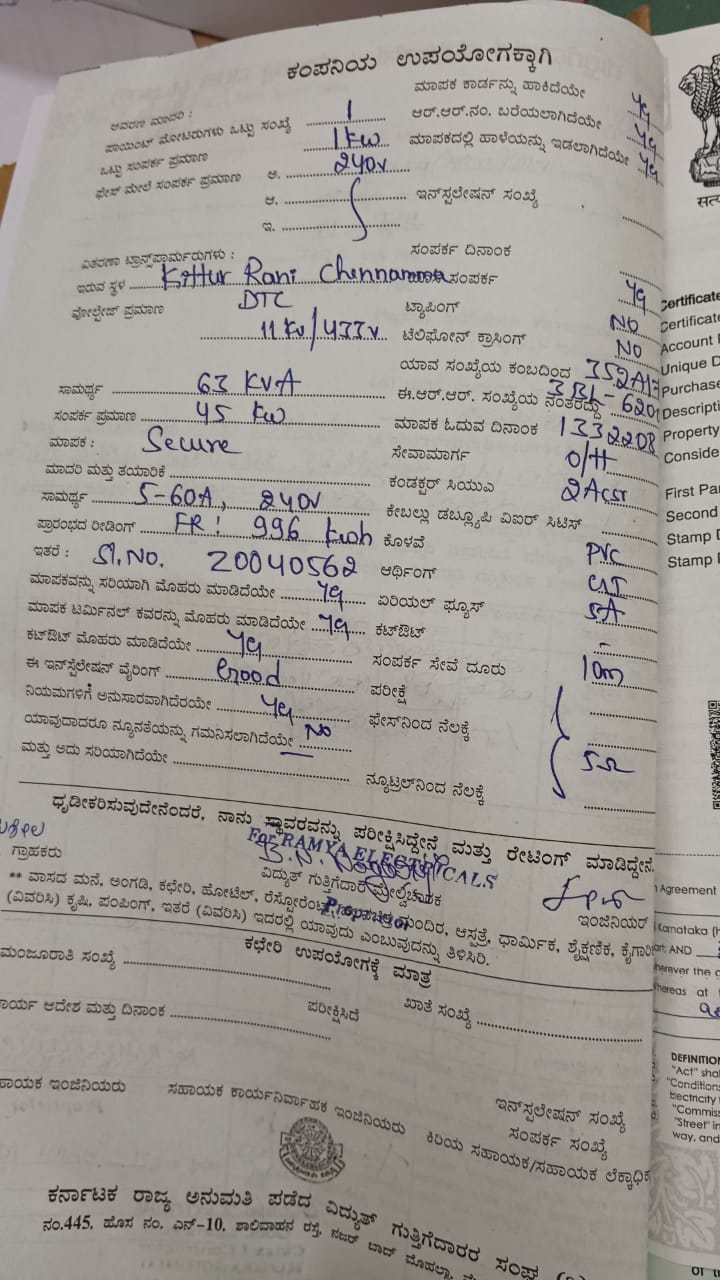 ಕಂಪನಿಯ ಉಪಯೋಗಕ್ಕಾಗಿ
ಆವರಣ ಮಾದರಿ :
ಪಾಯಿಂಟ್ ಮೋಟರುಗಳು ಒಟ್ಟು ಸಂಖ್ಯೆ 1
ಒಟ್ಟು ಸಂಪರ್ಕ ಪ್ರಮಾಣ 1 kw
ಫೇಸ್ ಮೇಲೆ ಸಂಪರ್ಕ ಪ್ರಮಾಣ ಅ. 240v
ಆ.
ಇ.
ವಿತರಣಾ ಟ್ರಾನ್ಸ್‌ಫಾರ್ಮರುಗಳು :
ಇರುವ ಸ್ಥಳ Kittur Rani Chennamma
DTC
ವೋಲ್ಟೇಜ್ ಪ್ರಮಾಣ 11 kv/433v
ಸಾಮರ್ಥ್ಯ 63 KVA
ಸಂಪರ್ಕ ಪ್ರಮಾಣ 45 kw
ಮಾಪಕ : Secure
ಮಾದರಿ ಮತ್ತು ತಯಾರಿಕೆ
ಸಾಮರ್ಥ್ಯ 5-60A, 240v
ಪ್ರಾರಂಭದ ರೀಡಿಂಗ್ FR: 996 kwh
ಇತರೆ : Sl.No. 20040562
ಮಾಪಕವನ್ನು ಸರಿಯಾಗಿ ಮೊಹರು ಮಾಡಿದೆಯೇ yes
ಮಾಪಕ ಟರ್ಮಿನಲ್ ಕವರನ್ನು ಮೊಹರು ಮಾಡಿದೆಯೇ yes
ಕಟ್‌ಔಟ್ ಮೊಹರು ಮಾಡಿದೆಯೇ yes
ಈ ಇನ್‌ಸ್ಟಲೇಷನ್ ವೈರಿಂಗ್ Good
ನಿಯಮಗಳಿಗೆ ಅನುಸಾರವಾಗಿದೆಯೇ yes
ಯಾವುದಾದರೂ ನ್ಯೂನತೆಯನ್ನು ಗಮನಿಸಲಾಗಿದೆಯೇ No
ಮತ್ತು ಅದು ಸರಿಯಾಗಿದೆಯೇ
ಮಾಪಕ ಕಾರ್ಡನ್ನು ಹಾಕಿದೆಯೇ yes
ಆರ್.ಆರ್.ನಂ. ಬರೆಯಲಾಗಿದೆಯೇ yes
ಮಾಪಕದಲ್ಲಿ ಹಾಳೆಯನ್ನು ಇಡಲಾಗಿದೆಯೇ yes
ಇನ್‌ಸ್ಟಲೇಷನ್ ಸಂಖ್ಯೆ
ಸಂಪರ್ಕ ದಿನಾಂಕ
ಸಂಪರ್ಕ yes
ಟ್ಯಾಪಿಂಗ್ No
ಟೆಲಿಫೋನ್ ಕ್ರಾಸಿಂಗ್ No
ಯಾವ ಸಂಖ್ಯೆಯ ಕಂಬದಿಂದ
ಈ.ಆರ್.ಆರ್. ಸಂಖ್ಯೆಯ ನಂತರದ್ದು
ಮಾಪಕ ಓದುವ ದಿನಾಂಕ 1332208
ಸೇವಾಮಾರ್ಗ O/H
ಕಂಡಕ್ಟರ್ ಸಿಯುವಿ
ಕೇಬಲ್ಲು ಡಬ್ಲ್ಯೂಪಿ ವಿಐರ್ ಸಿಟಿಸ್
ಕೊಳವೆ PVC
ಆರ್ಥಿಂಗ್
ಏರಿಯಲ್ ಫ್ಯೂಸ್ 5A
ಕಟ್‌ಔಟ್ -
ಸಂಪರ್ಕ ಸೇವೆ ದೂರು 10m
ಪರೀಕ್ಷೆ
ಫೇಸ್‌ನಿಂದ ನೆಲಕ್ಕೆ
5Ω
ನ್ಯೂಟ್ರಲ್‌ನಿಂದ ನೆಲಕ್ಕೆ
ಧೃಡೀಕರಿಸುವುದೇನೆಂದರೆ, ನಾನು ಸ್ಥಾವರವನ್ನು ಪರೀಕ್ಷಿಸಿದ್ದೇನೆ ಮತ್ತು ರೇಟಿಂಗ್ ಮಾಡಿದ್ದೇನೆ.
For RAMYA ELECTRICALS
ಗ್ರಾಹಕರು
ವಿದ್ಯುತ್ ಗುತ್ತಿಗೆದಾರ ಮೇಲ್ವಿಚಾರಕ
Proprietor
ಇಂಜಿನಿಯರ್
** ವಾಸದ ಮನೆ, ಅಂಗಡಿ, ಕಛೇರಿ, ಹೋಟೆಲ್, ರೆಸ್ಟೋರೆಂಟ್, ಮಂದಿರ, ಆಸ್ಪತ್ರೆ, ಧಾರ್ಮಿಕ, ಶೈಕ್ಷಣಿಕ,
(ವಿವರಿಸಿ) ಕೃಷಿ, ಪಂಪಿಂಗ್, ಇತರೆ (ವಿವರಿಸಿ) ಇದರಲ್ಲಿ ಯಾವುದು ಎಂಬುವುದನ್ನು ತಿಳಿಸಿರಿ.
ಕಛೇರಿ ಉಪಯೋಗಕ್ಕೆ ಮಾತ್ರ
ಮಂಜೂರಾತಿ ಸಂಖ್ಯೆ
ಖಾತೆ ಸಂಖ್ಯೆ
ಆದೇಶ ಮತ್ತು ದಿನಾಂಕ
ಪರೀಕ್ಷಿಸಿದೆ
ಇಂಜಿನಿಯರು
ಸಹಾಯಕ ಕಾರ್ಯನಿರ್ವಾಹಕ ಇಂಜಿನಿಯರು
ಇನ್‌ಸ್ಟಲೇಷನ್ ಸಂಖ್ಯೆ
ಸಂಪರ್ಕ ಸಂಖ್ಯೆ
ಕಿರಿಯ ಸಹಾಯಕ/ಸಹಾಯಕ ಲೆಕ್ಕಾಧಿಕ
ಕರ್ನಾಟಕ ರಾಜ್ಯ ಅನುಮತಿ ಪಡೆದ ವಿದ್ಯುತ್ ಗುತ್ತಿಗೆದಾರರ ಸಂಘ
ನಂ.445, ಹೊಸ ನಂ. ಎನ್-10, ಶಾಲಿವಾಹನ ರಸ್ತೆ, ನಜರ್ ಬಾದ್ ಮೊಹಲ್ಲಾ,
Certificate
Certificate
Account
Unique D
Purchase
Descripti
Property
Conside
First Pa
Second
Stamp D
Stamp D
Agreement
Karnataka
AND
wherever the
whereas at
DEFINITION
"Act" sha
"Condition
Electricity
"Commiss
"Street" in
way, and